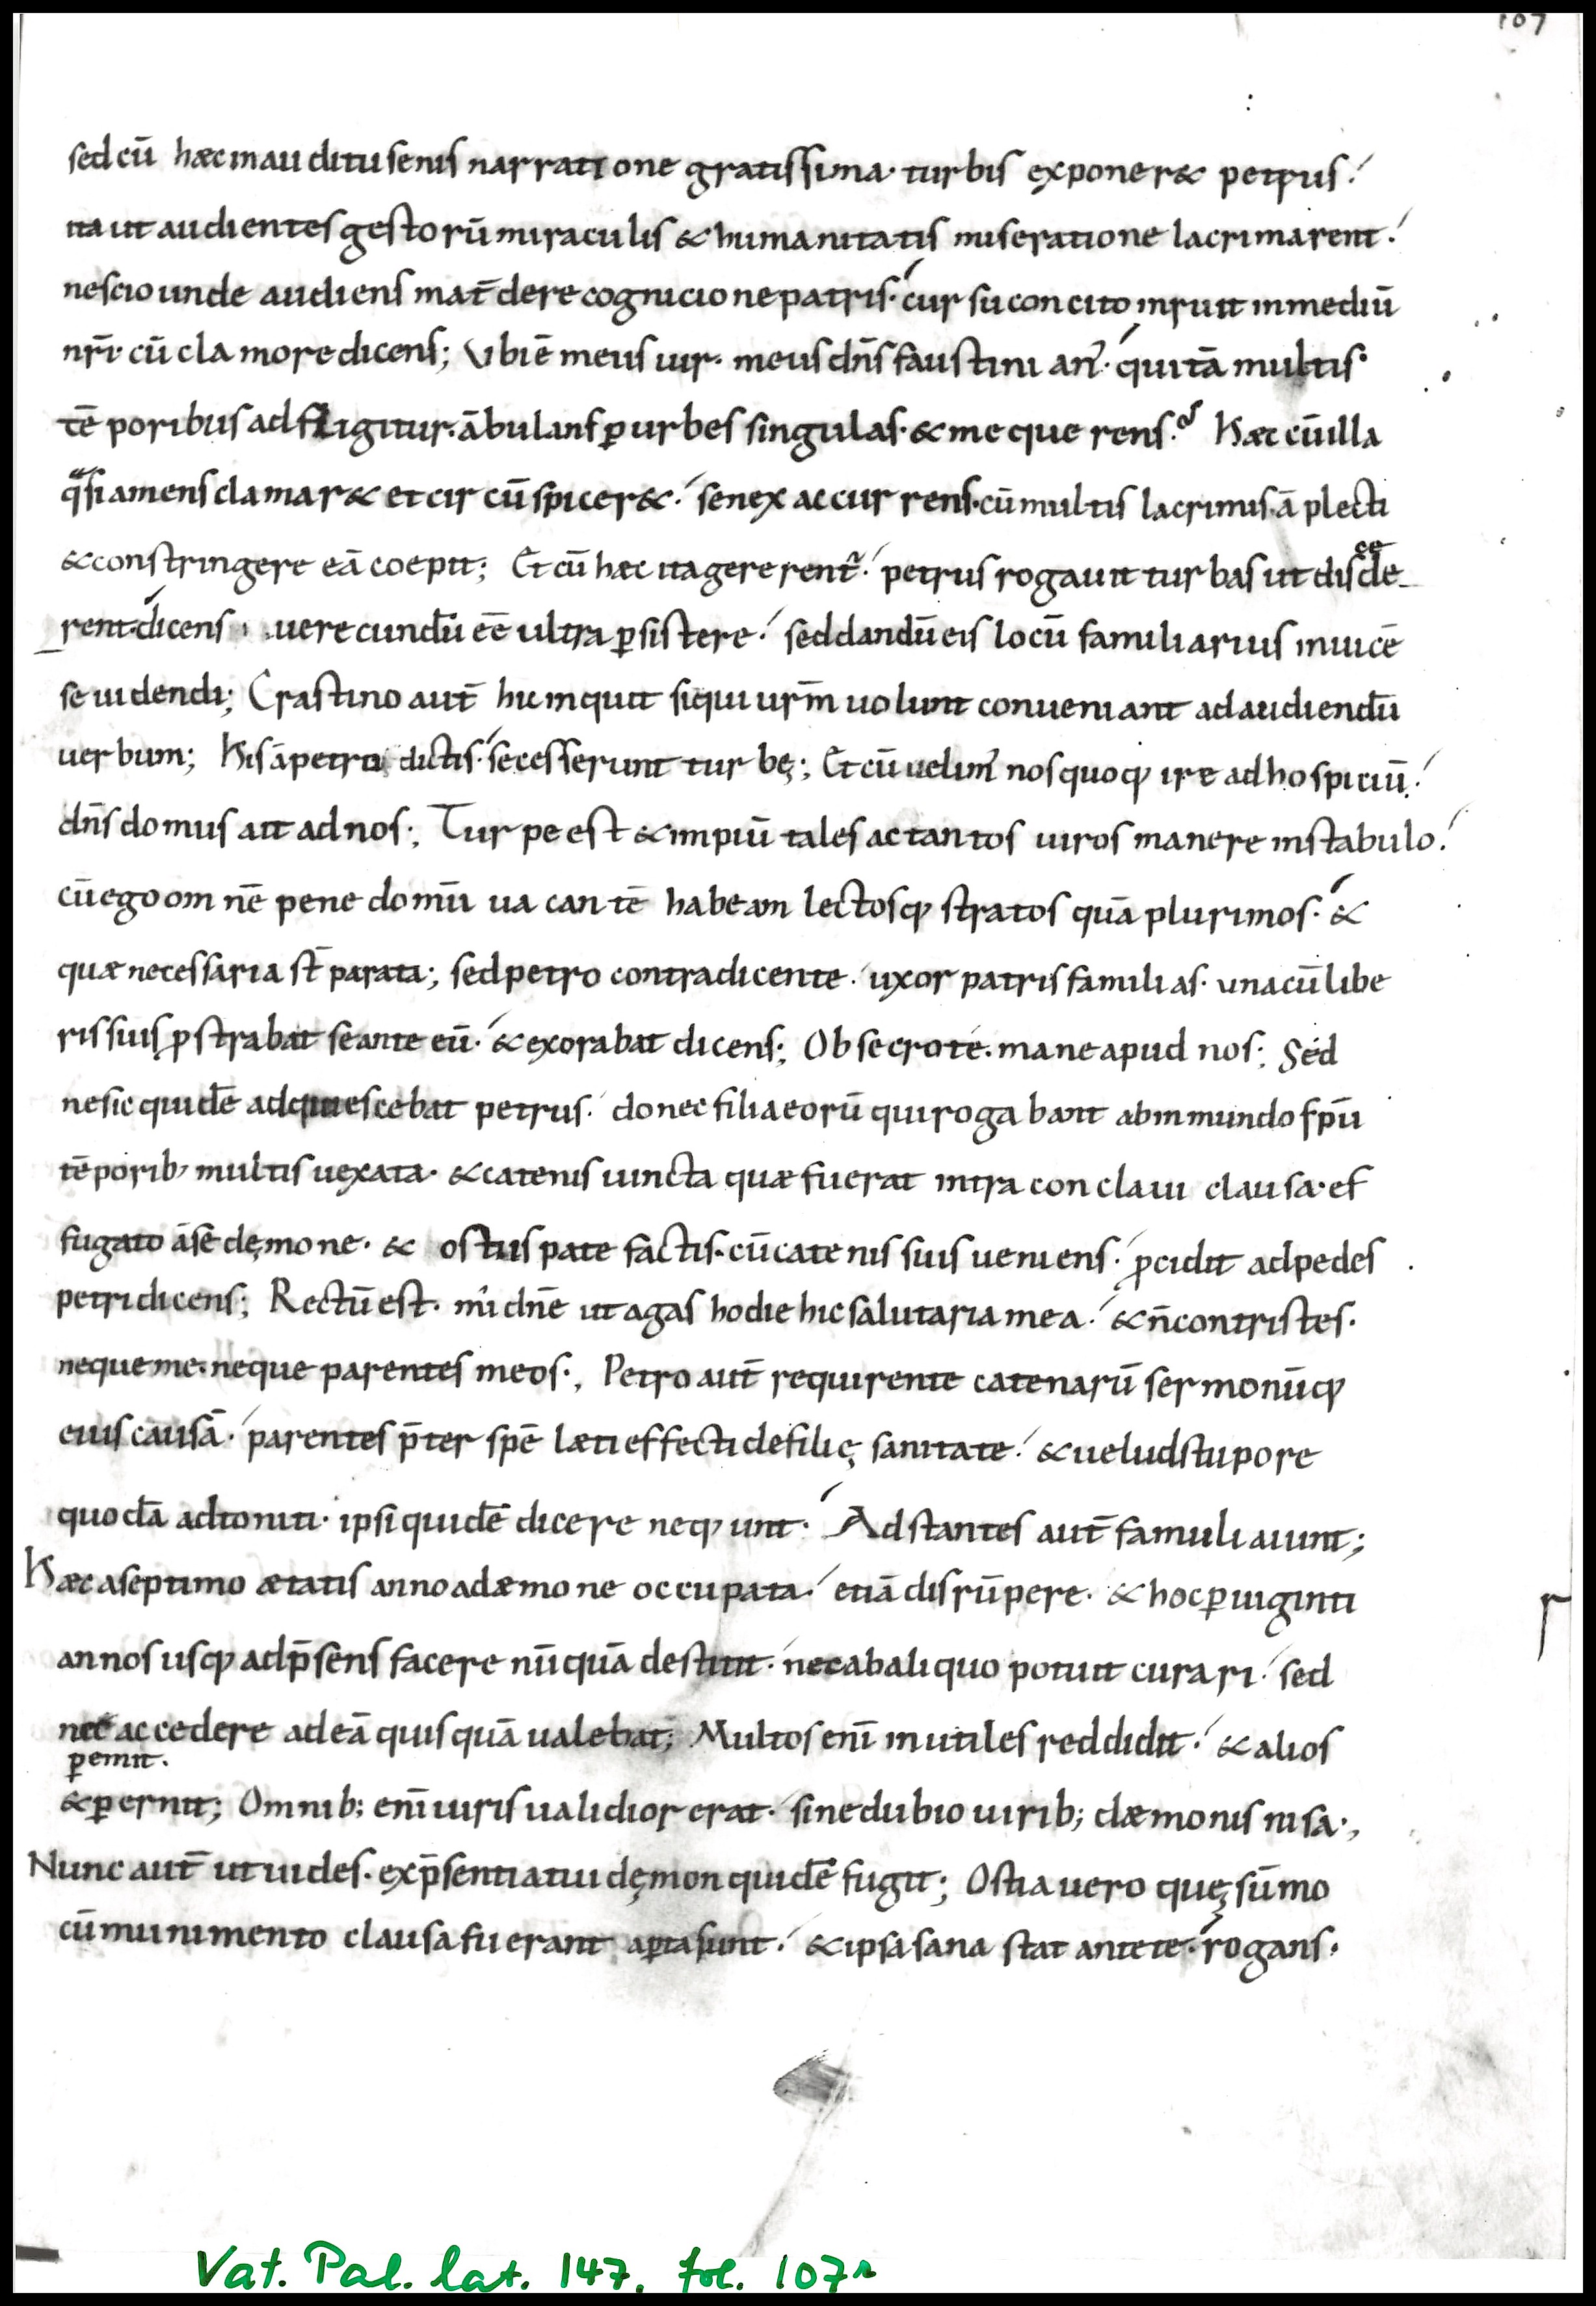 107
sed cū hæc in auditu senis narratione gratissima· turbis exponer& petrus·
ita ut audientes gestorū miraculis & humanitatis miseratione lacrimarent·
nescio unde audiens mat̄ de re cognicione patris· cursu concito inruit in mediū
nr̄i· cū clamore dicens; Ubi ē meus uir· meus dn̄s faustinian᾿· qui tā multis
tēporibus adfligitur· ābulans ꝑ urbes singulas· & me querens· Hæc cū illa
qᵃsi amens clamar& et circūspicer&· senex accurrens· cū multis lacrimis· āplecti
& constringere eā coepit; Et cū hæc ita gererentᷣ· petrus rogauit turbas ut discede
rent· dicens uerecundū ēē ultra ꝑsistere· sed dandū eis locū familiarius inuicē
se uidendi; Crastino aut̄ hic inquit siqui ur̄m uolunt conueniant ad audiendū
uerbum; His ā petro dictis· secesserunt turbę; Et cū uelim᾿ nos quoq; ire ad hospiciū·
dn̄s domus ait ad nos; Turpe est & impiū tales ac tantos uiros manere in stabulo·
cū ego omnē pene domū uacantē habeam lectosq; stratos quā plurimos· &
quæ necessaria st̄ parata; sed petro contradicente· uxor patris familias· una cū libe
ris suis ꝓstrabat se ante eū· & exorabat dicens; Obsecro te· mane apud nos; Sed
ne sic quidē adquiescebat petrus· donec filia eorū qui rogabant ab inmundo sp̄u
tēporib; multis uexata· & catenis uincta quæ fuerat intra conclaui clausa· ef
fugato ā se dęmone· & ostiis patefactis· cū catenis suis ueniens· ꝓcidit ad pedes
petri dicens; Rectū est· mi dn̄e ut agas hodie hic salutaria mea· & n̄ contristes·
neque me· neque parentes meos·, Petro aut̄ requirente catenarū sermonūq;
eius causā· parentes p̄ter spē læti effecti de filię sanitate· & uelud stupore
quodā adtoniti· ipsi quidē dicere neq;unt· Adstantes aut̄ famuli aiunt;
Hæc a septimo ætatis anno a dæmone occupata· etiā disrūpere· & hoc ꝑ uiginti
annos usq; ad p̄sens facere nūquā destitit· nec ab aliquo potuit curari· sed
nec accedere ad eā quisquā ualebat; Multos enī inutiles reddidit· & alios
ꝑemit·
& ꝑernit; Omnib; enī uiris ualidior erat· sine dubio uirib; dæmonis nisa·,
Nunc aut̄ ut uides· ex p̄sentia tui dęmon quidē fugit; Ostia uero quę sūmo
cū munimento clausa fuerant aꝑta sunt· & ipsa sana stat ante te· rogans·
Vat. Pal. lat. 147, fol. 107r